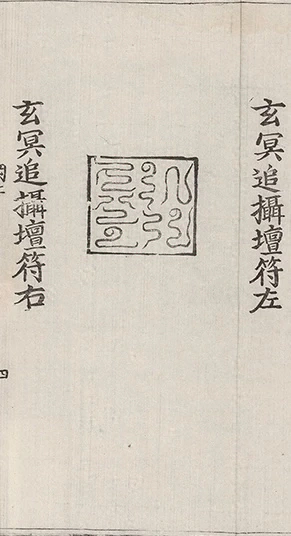 玄冥追攝壇符左
玄冥追攝壇符右
四